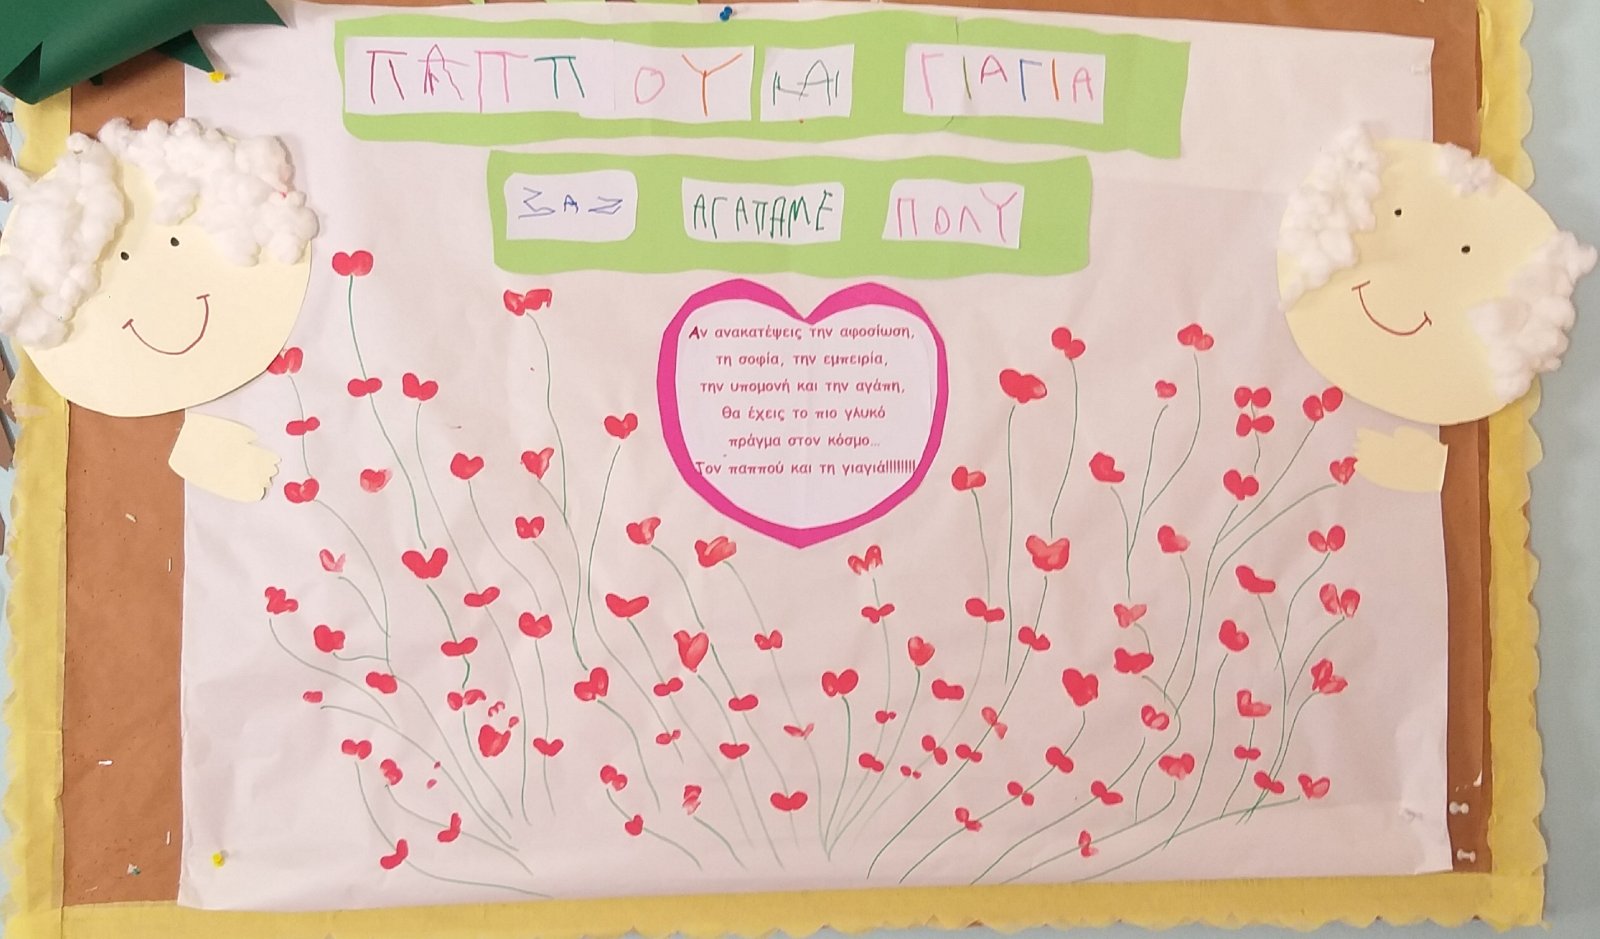 ΠΑΠΠΟΥ ΚΑΙ ΓΙΑΓΙΑ
ΣΑΣ ΑΓΑΠΑΜΕ ΠΟΛΥ
Αν ανακατέψεις την αφοσίωση,
τη σοφία, την εμπειρία,
την υπομονή και την αγάπη,
θα έχεις το πιο γλυκό
πράγμα στον κόσμο...
Τον παππού και τη γιαγιά!!!!!!!!!